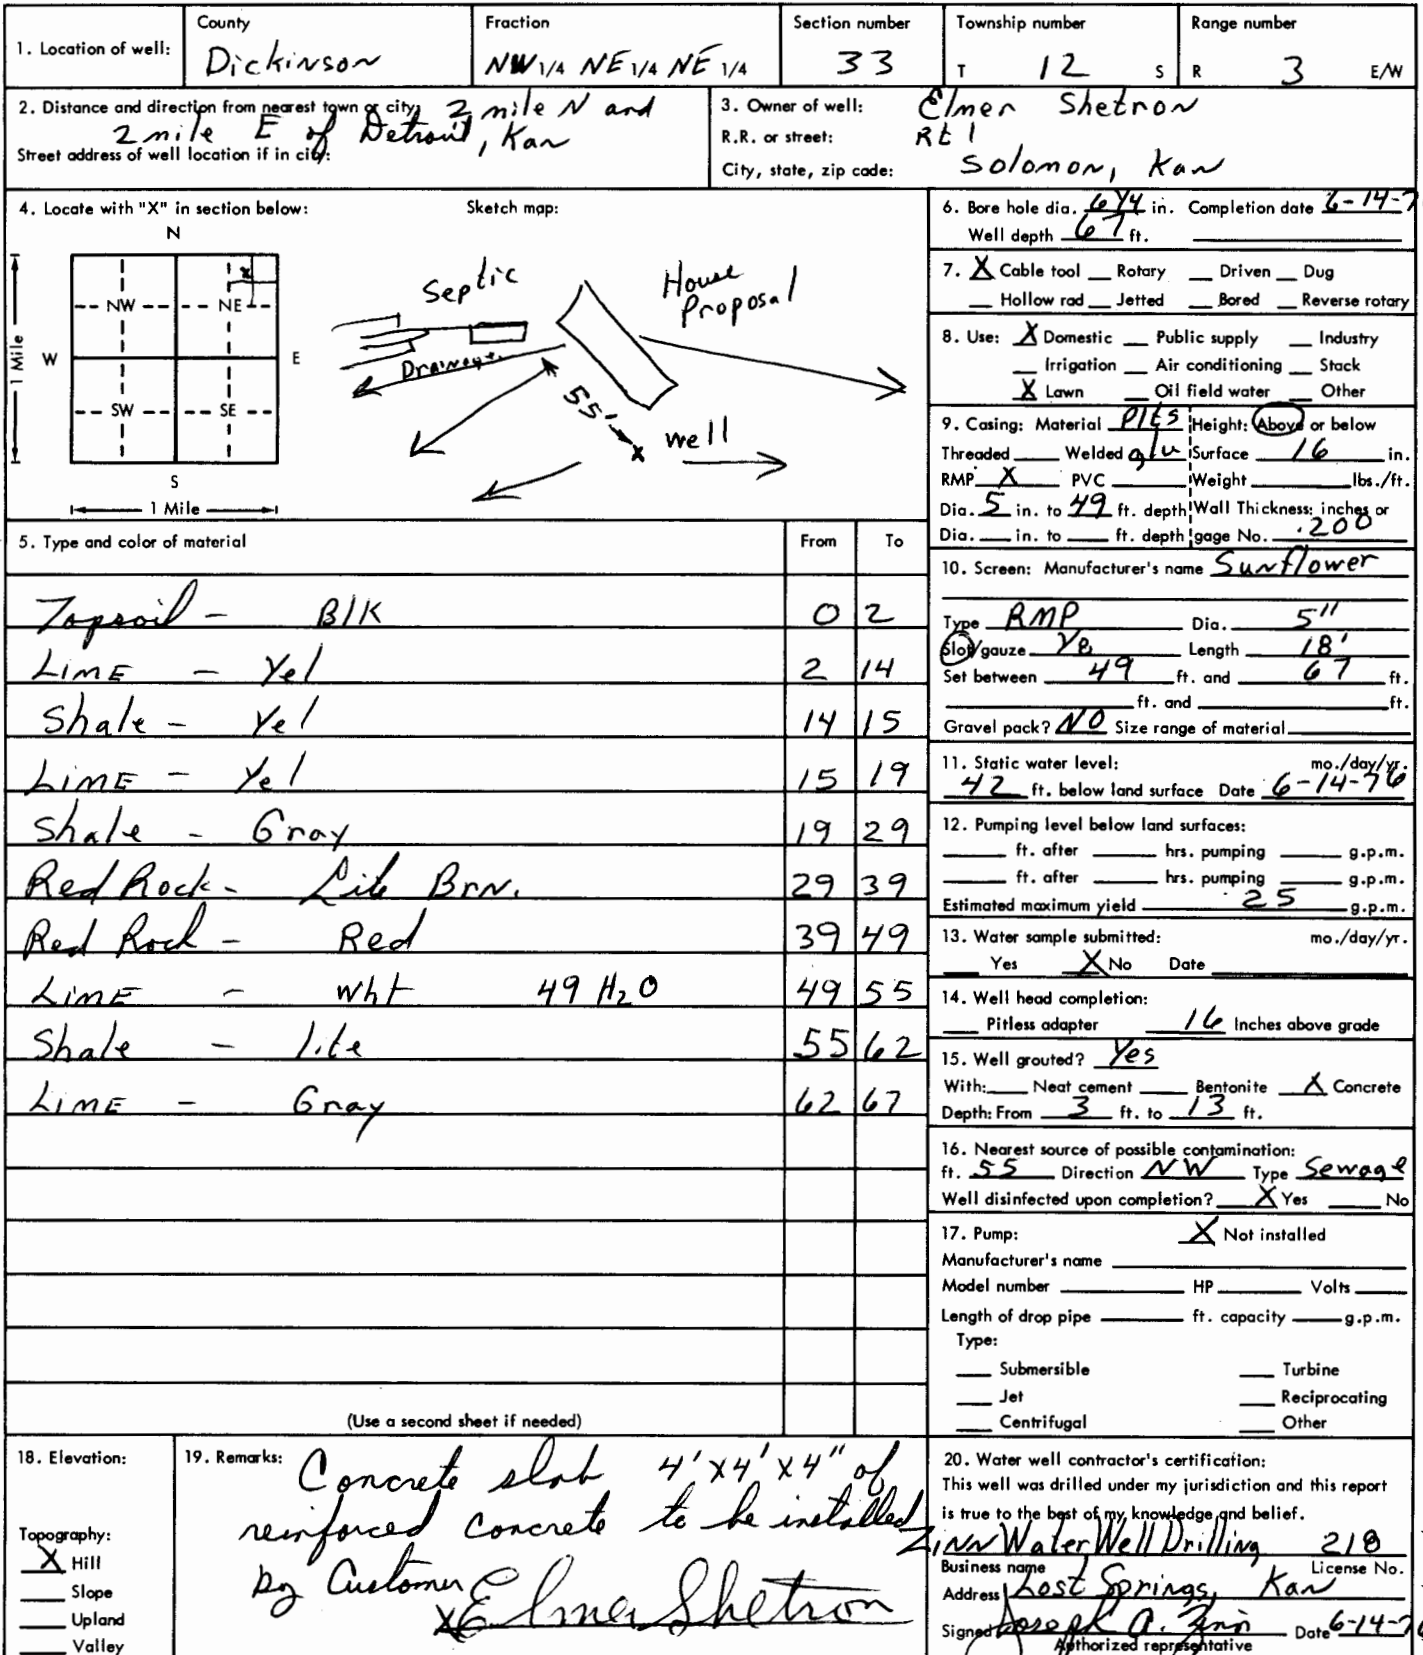 1. Location of well: County Dickinson Fraction NW 1/4 NE 1/4 NE 1/4 Section number 33 Township number T 12 S Range number R 3 E/W
2. Distance and direction from nearest town or city: 2 mile N and
2 mile E of Detroit, Kan
Street address of well location if in city:
3. Owner of well: Elmer Shetron
R.R. or street: Rt 1
City, state, zip code: Solomon, Kan
4. Locate with "X" in section below:
N
NW NE
W E
SW SE
S
1 Mile
1 Mile
x
Sketch map:
Septic
House
Proposal
Drainage
55'
x well
5. Type and color of material From To
Topsoil - Blk 0 2
LimE - Yel 2 14
Shale - Yel 14 15
LimE - Yel 15 19
Shale - Gray 19 29
Red Rock - Lite Brn. 29 39
Red Rock - Red 39 49
LimE - Wht 49 H2O 49 55
Shale - lite 55 62
LimE - Gray 62 67
(Use a second sheet if needed)
6. Bore hole dia. 6 1/4 in. Completion date 6-14-7
Well depth 67 ft.
7. X Cable tool Rotary Driven Dug
Hollow rad Jetted Bored Reverse rotary
8. Use: X Domestic Public supply Industry
Irrigation Air conditioning Stack
X Lawn Oil field water Other
9. Casing: Material Plts Height: Above or below
Threaded Welded glu Surface 16 in.
RMP X PVC Weight lbs./ft.
Dia. 5 in. to 49 ft. depth Wall Thickness: inches or
Dia. in. to ft. depth gage No. .200
10. Screen: Manufacturer's name Sunflower
Type RMP Dia. 5"
Slot/gauze 1/8 Length 18'
Set between 49 ft. and 67 ft.
ft. and ft.
Gravel pack? NO Size range of material
11. Static water level: mo./day/yr.
42 ft. below land surface Date 6-14-76
12. Pumping level below land surfaces:
ft. after hrs. pumping g.p.m.
ft. after hrs. pumping g.p.m.
Estimated maximum yield 25 g.p.m.
13. Water sample submitted: mo./day/yr.
Yes X No Date
14. Well head completion:
Pitless adapter 16 Inches above grade
15. Well grouted? Yes
With: Neat cement Bentonite X Concrete
Depth: From 3 ft. to 13 ft.
16. Nearest source of possible contamination:
ft. 55 Direction NW Type Sewage
Well disinfected upon completion? X Yes No
17. Pump: X Not installed
Manufacturer's name
Model number HP Volts
Length of drop pipe ft. capacity g.p.m.
Type:
Submersible Turbine
Jet Reciprocating
Centrifugal Other
18. Elevation:
Topography:
X Hill
Slope
Upland
Valley
19. Remarks: Concrete slab 4'x4'x4" of
reinforced concrete to be installed
by Customer
x Elmer Shetron
20. Water well contractor's certification:
This well was drilled under my jurisdiction and this report
is true to the best of my knowledge and belief.
Zinn Water Well Drilling 218
Business name License No.
Address Lost Springs, Kan
Signed Joseph A. Zinn Date 6-14-76
Authorized representative